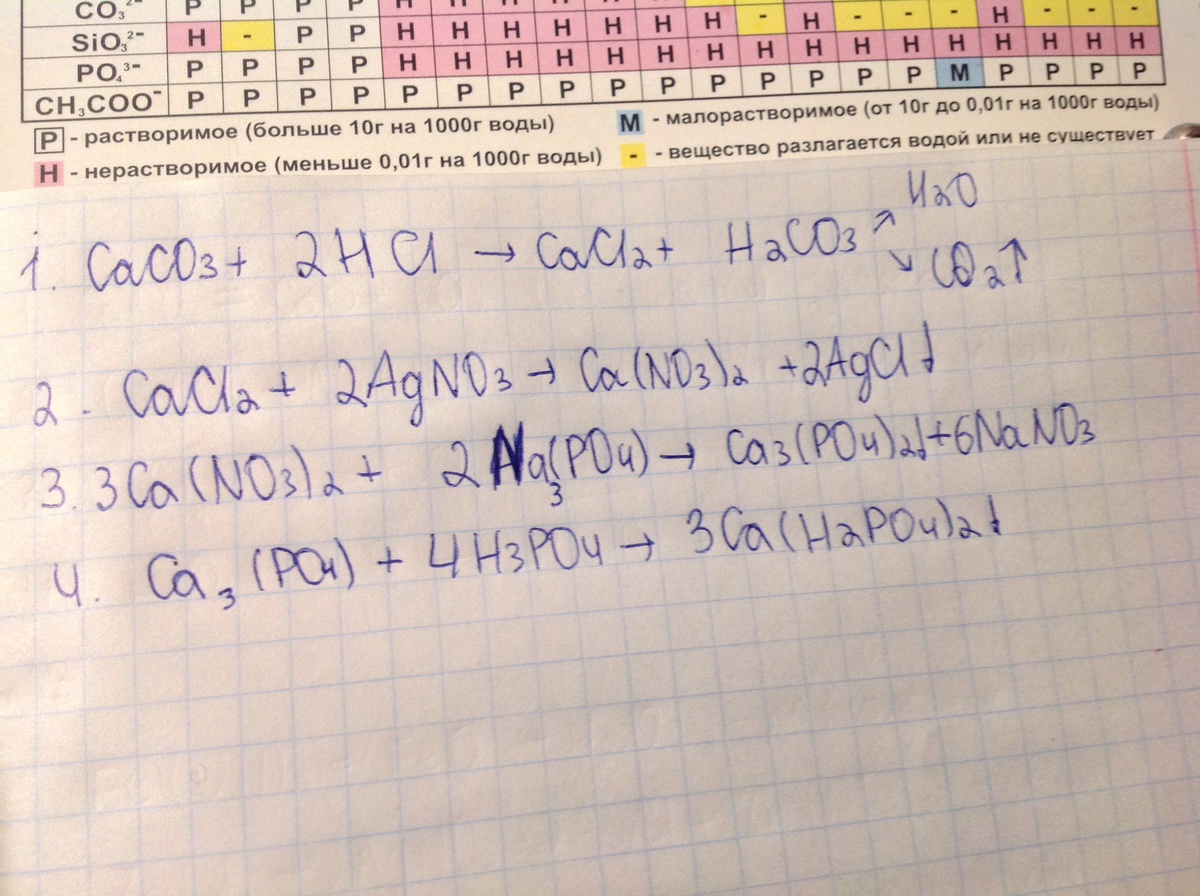 CO₃²⁻ Р Р Р Р Н Н Н Н Н
SiO₃²⁻ Н - Р Р Н Н Н Н Н Н Н - Н - - - Н - - -
PO₄³⁻ Р Р Р Р Н Н Н Н Н Н Н Н Н Н Н Н Н Н Н
CH₃COO⁻ Р Р Р Р Р Р Р Р Р Р Р Р Р Р М Р Р Р Р
Р - растворимое (больше 10г на 1000г воды)
М - малорастворимое (от 10г до 0,01г на 1000г воды)
Н - нерастворимое (меньше 0,01г на 1000г воды)
- - вещество разлагается водой или не существует
1. CaCO3 + 2HCl → CaCl2 + H2CO3 ↗ H2O
↘ CO2↑
2. CaCl2 + 2AgNO3 → Ca(NO3)2 + 2AgCl↓
3. 3Ca(NO3)2 + 2Na3(PO4) → Ca3(PO4)2↓ + 6NaNO3
4. Ca3(PO4) + 4H3PO4 → 3Ca(H2PO4)2↓